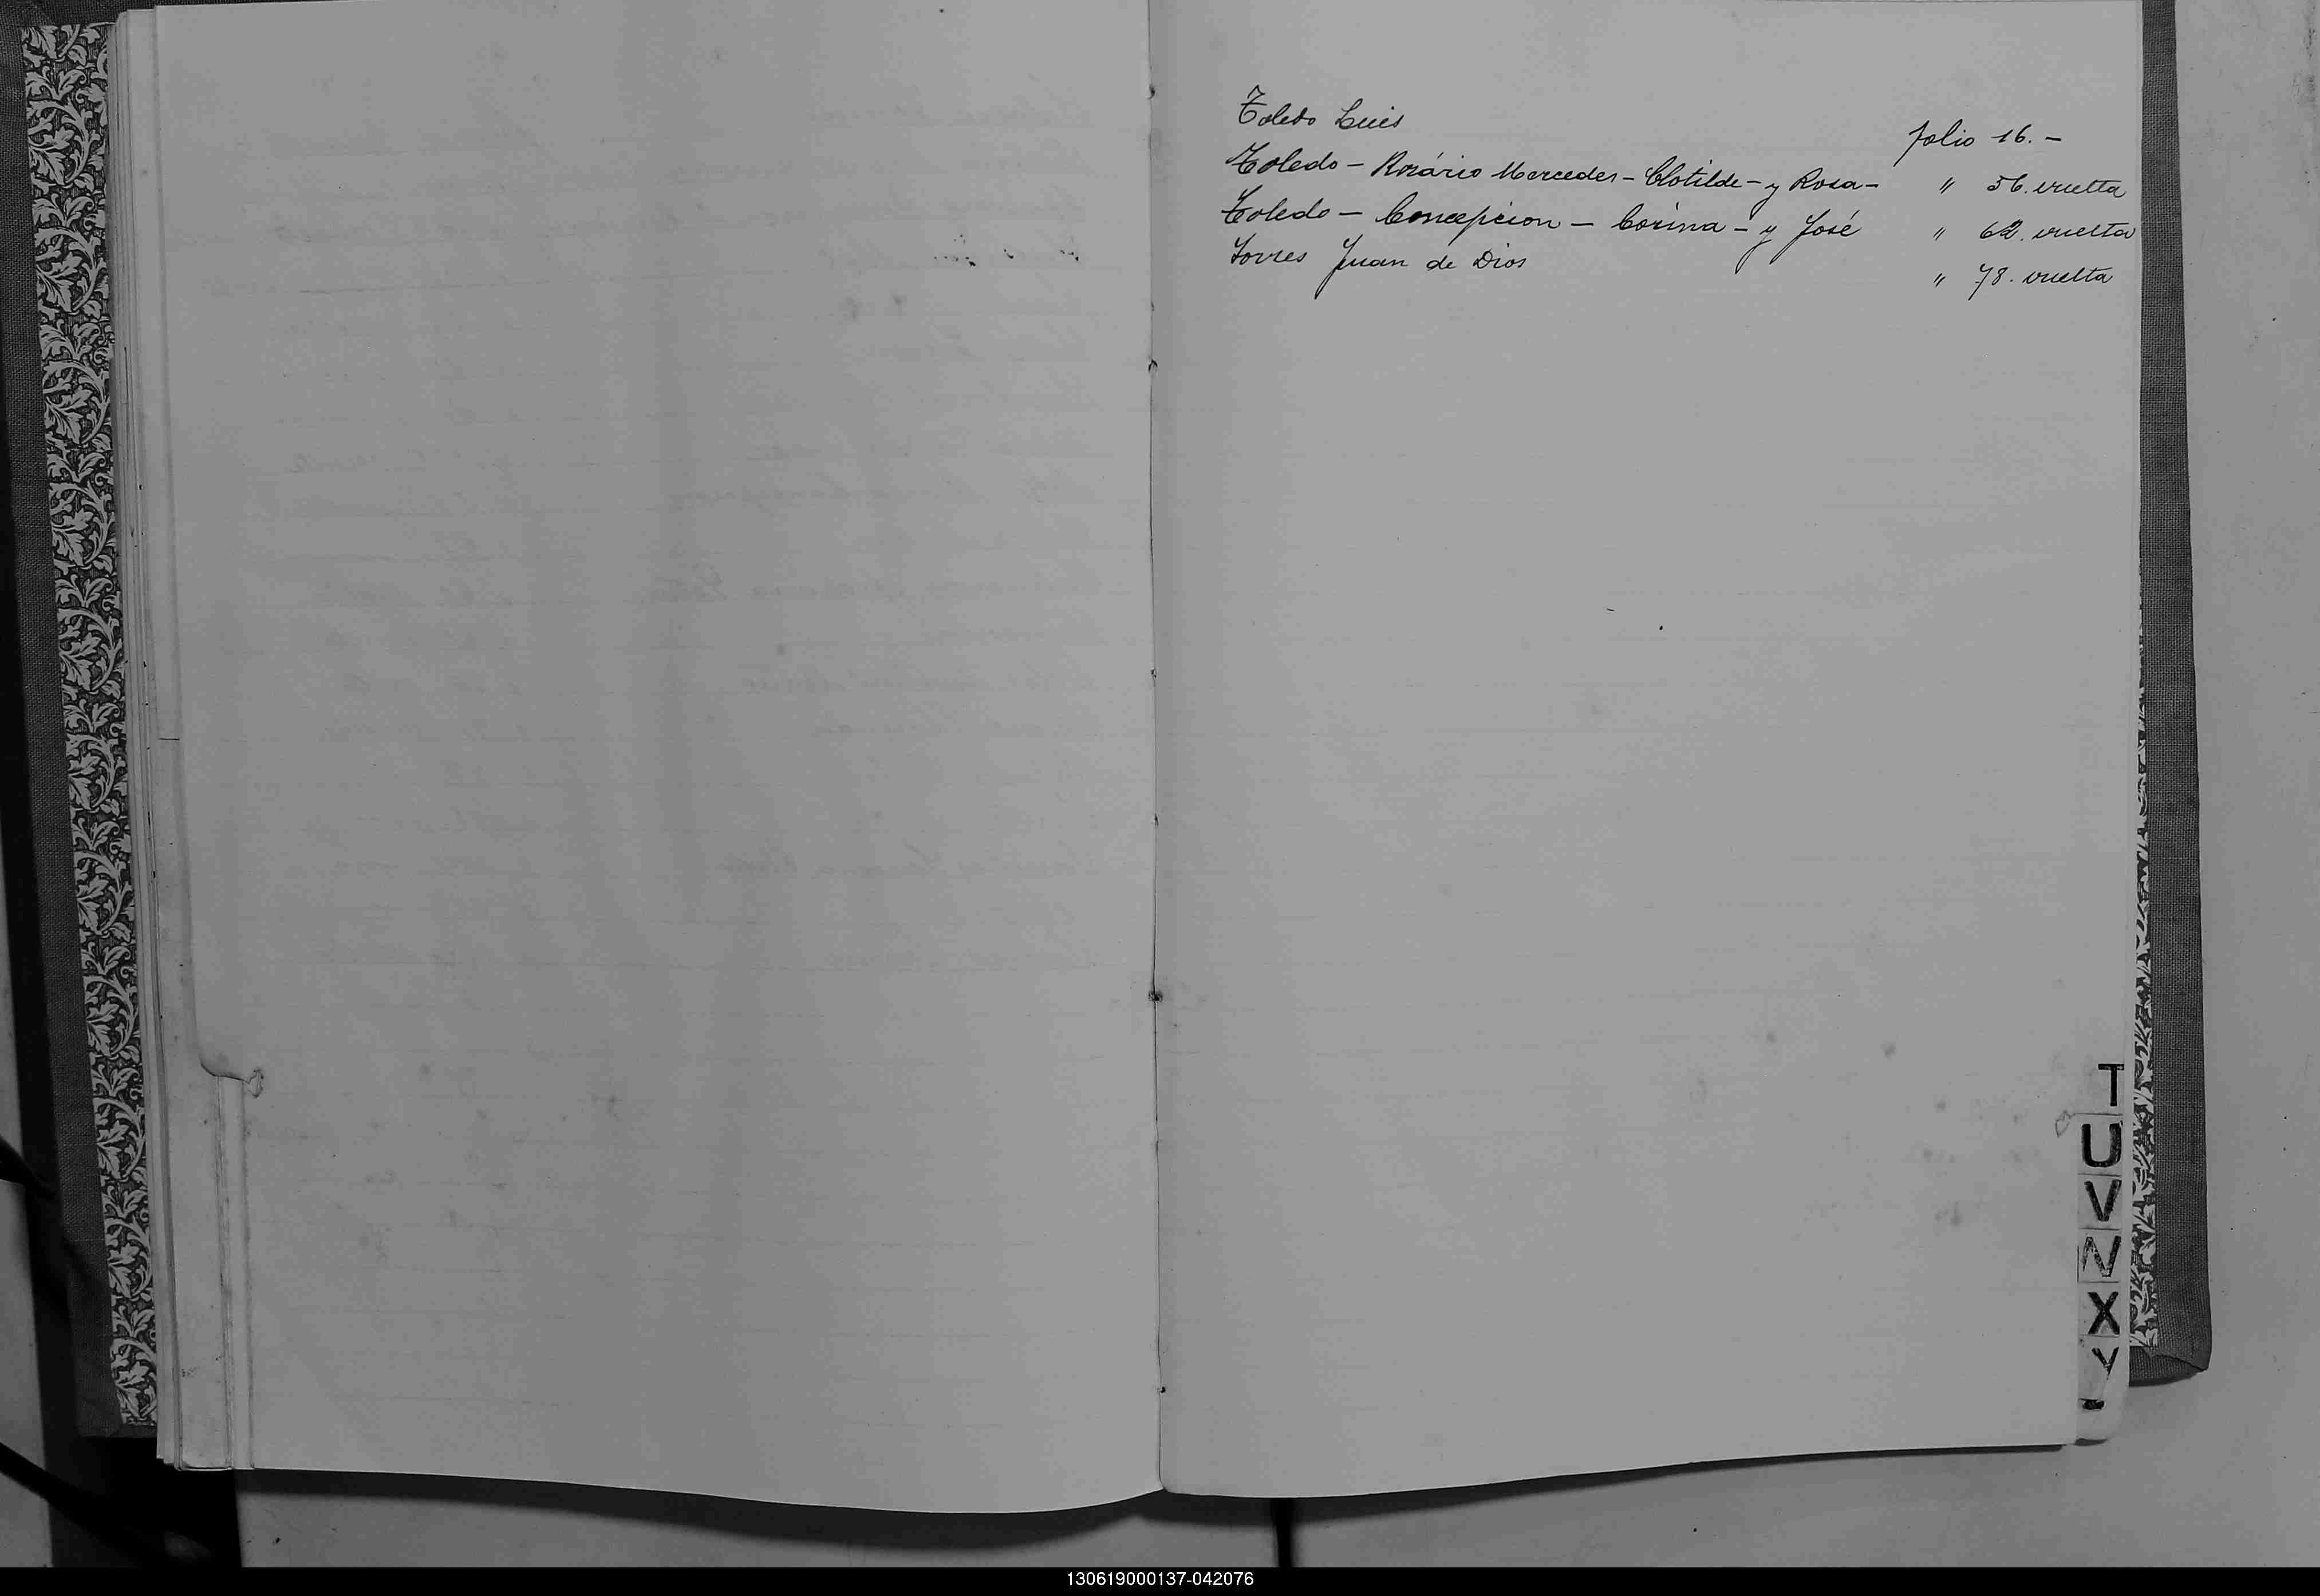 Toledo Luis folio 16. —
Toledo — Rosário Mercedes — Clotilde — y Rosa — " 56. vuelta
Toledo — Concepcion — Corina — y José " 62. vuelta
Torres Juan de Dios " 78. vuelta
T
U
V
W
X
Y
130619000137-042076